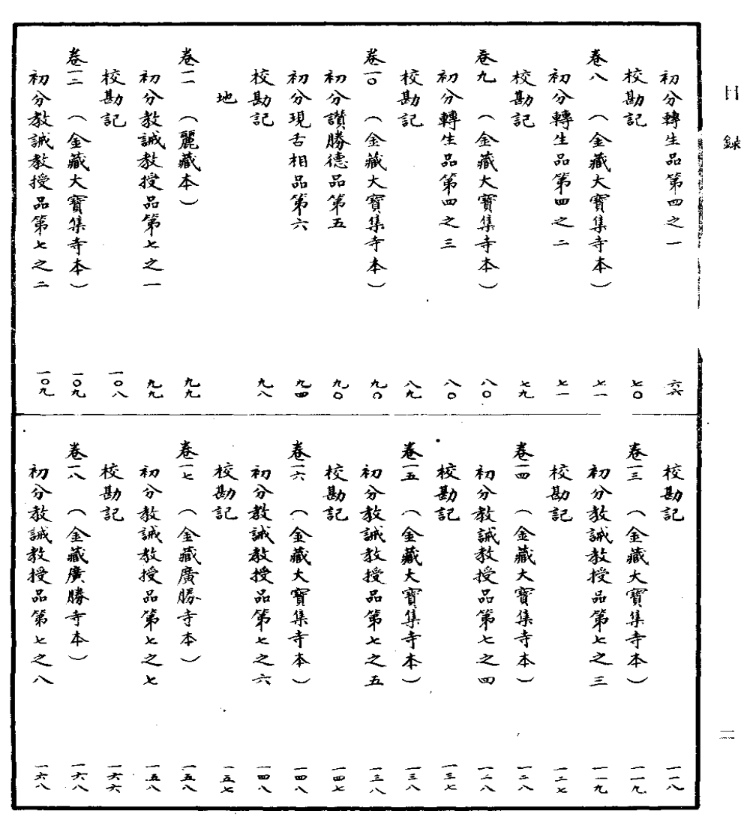 目錄
初分轉生品第四之一 六六
校勘記 七〇
卷八 （金藏大寶集寺本） 七一
初分轉生品第四之二 七一
校勘記 七九
卷九 （金藏大寶集寺本） 八〇
初分轉生品第四之三 八〇
校勘記 八九
卷一〇 （金藏大寶集寺本） 九〇
初分讚勝德品第五 九〇
初分現舌相品第六 九四
校勘記 九八
地
卷一一 （麗藏本） 九九
初分教誡教授品第七之一 九九
校勘記 一〇八
卷一二 （金藏大寶集寺本） 一〇九
初分教誡教授品第七之二 一〇九
校勘記 一一八
卷一三 （金藏大寶集寺本） 一一九
初分教誡教授品第七之三 一一九
校勘記 一二七
卷一四 （金藏大寶集寺本） 一二八
初分教誡教授品第七之四 一二八
校勘記 一三七
卷一五 （金藏大寶集寺本） 一三八
初分教誡教授品第七之五 一三八
校勘記 一四七
卷一六 （金藏大寶集寺本） 一四八
初分教誡教授品第七之六 一四八
校勘記 一五七
卷一七 （金藏廣勝寺本） 一五八
初分教誡教授品第七之七 一五八
校勘記 一六六
卷一八 （金藏廣勝寺本） 一六八
初分教誡教授品第七之八 一六八
二